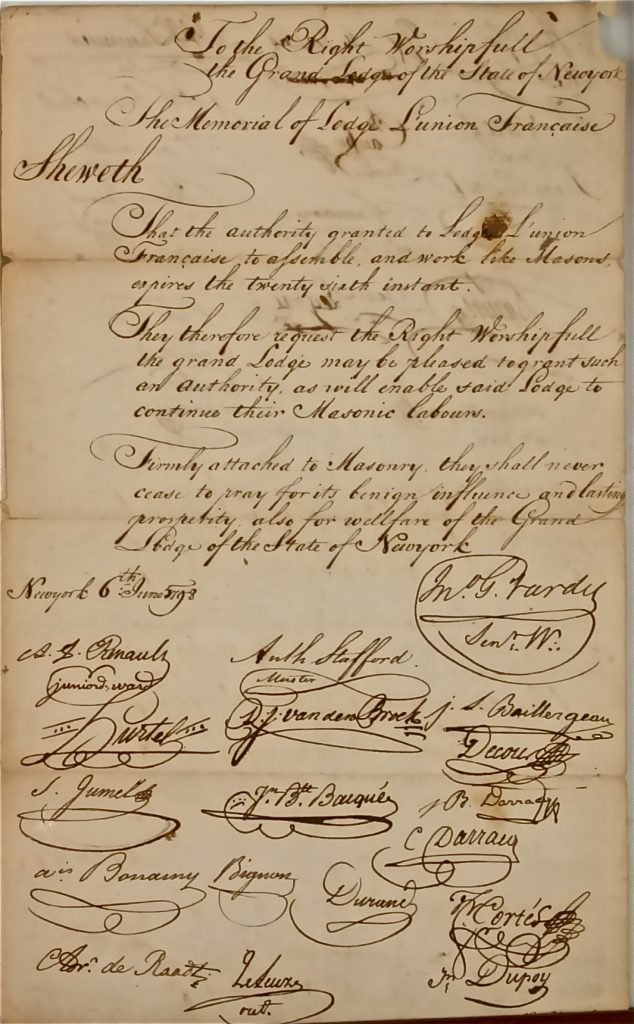 To the Right Worshipfull
the Grand Lodge of the State of Newyork
The Memorial of Lodge L'union Française
Sheweth
That the authority granted to Lodge L'union
Française, to assemble, and work like Masons,
expires the twenty sixth instant.
They therefore request the Right Worshipfull
the grand Lodge may be pleased to grant such
an authority, as will enable said Lodge to
continue their Masonic labours.
Firmly attached to Masonry, they shall never
cease to pray for its benign influence and lasting
prosperity, also for wellfare of the Grand
Lodge of the State of Newyork
Newyork 6th June 1798
Jno. G. Tardy
Senr. W.
Renault
junior ward
Anth Stafford
Master
D. J. van den Broek
J. S. Baillergeau
Hurtel
Decour
S. Jumel
Jn. Bte. Bacqué
J B. Darracq
C Darracq
Bonamy
Bignon
Durand
Cortés
de Raadt
Dupoy